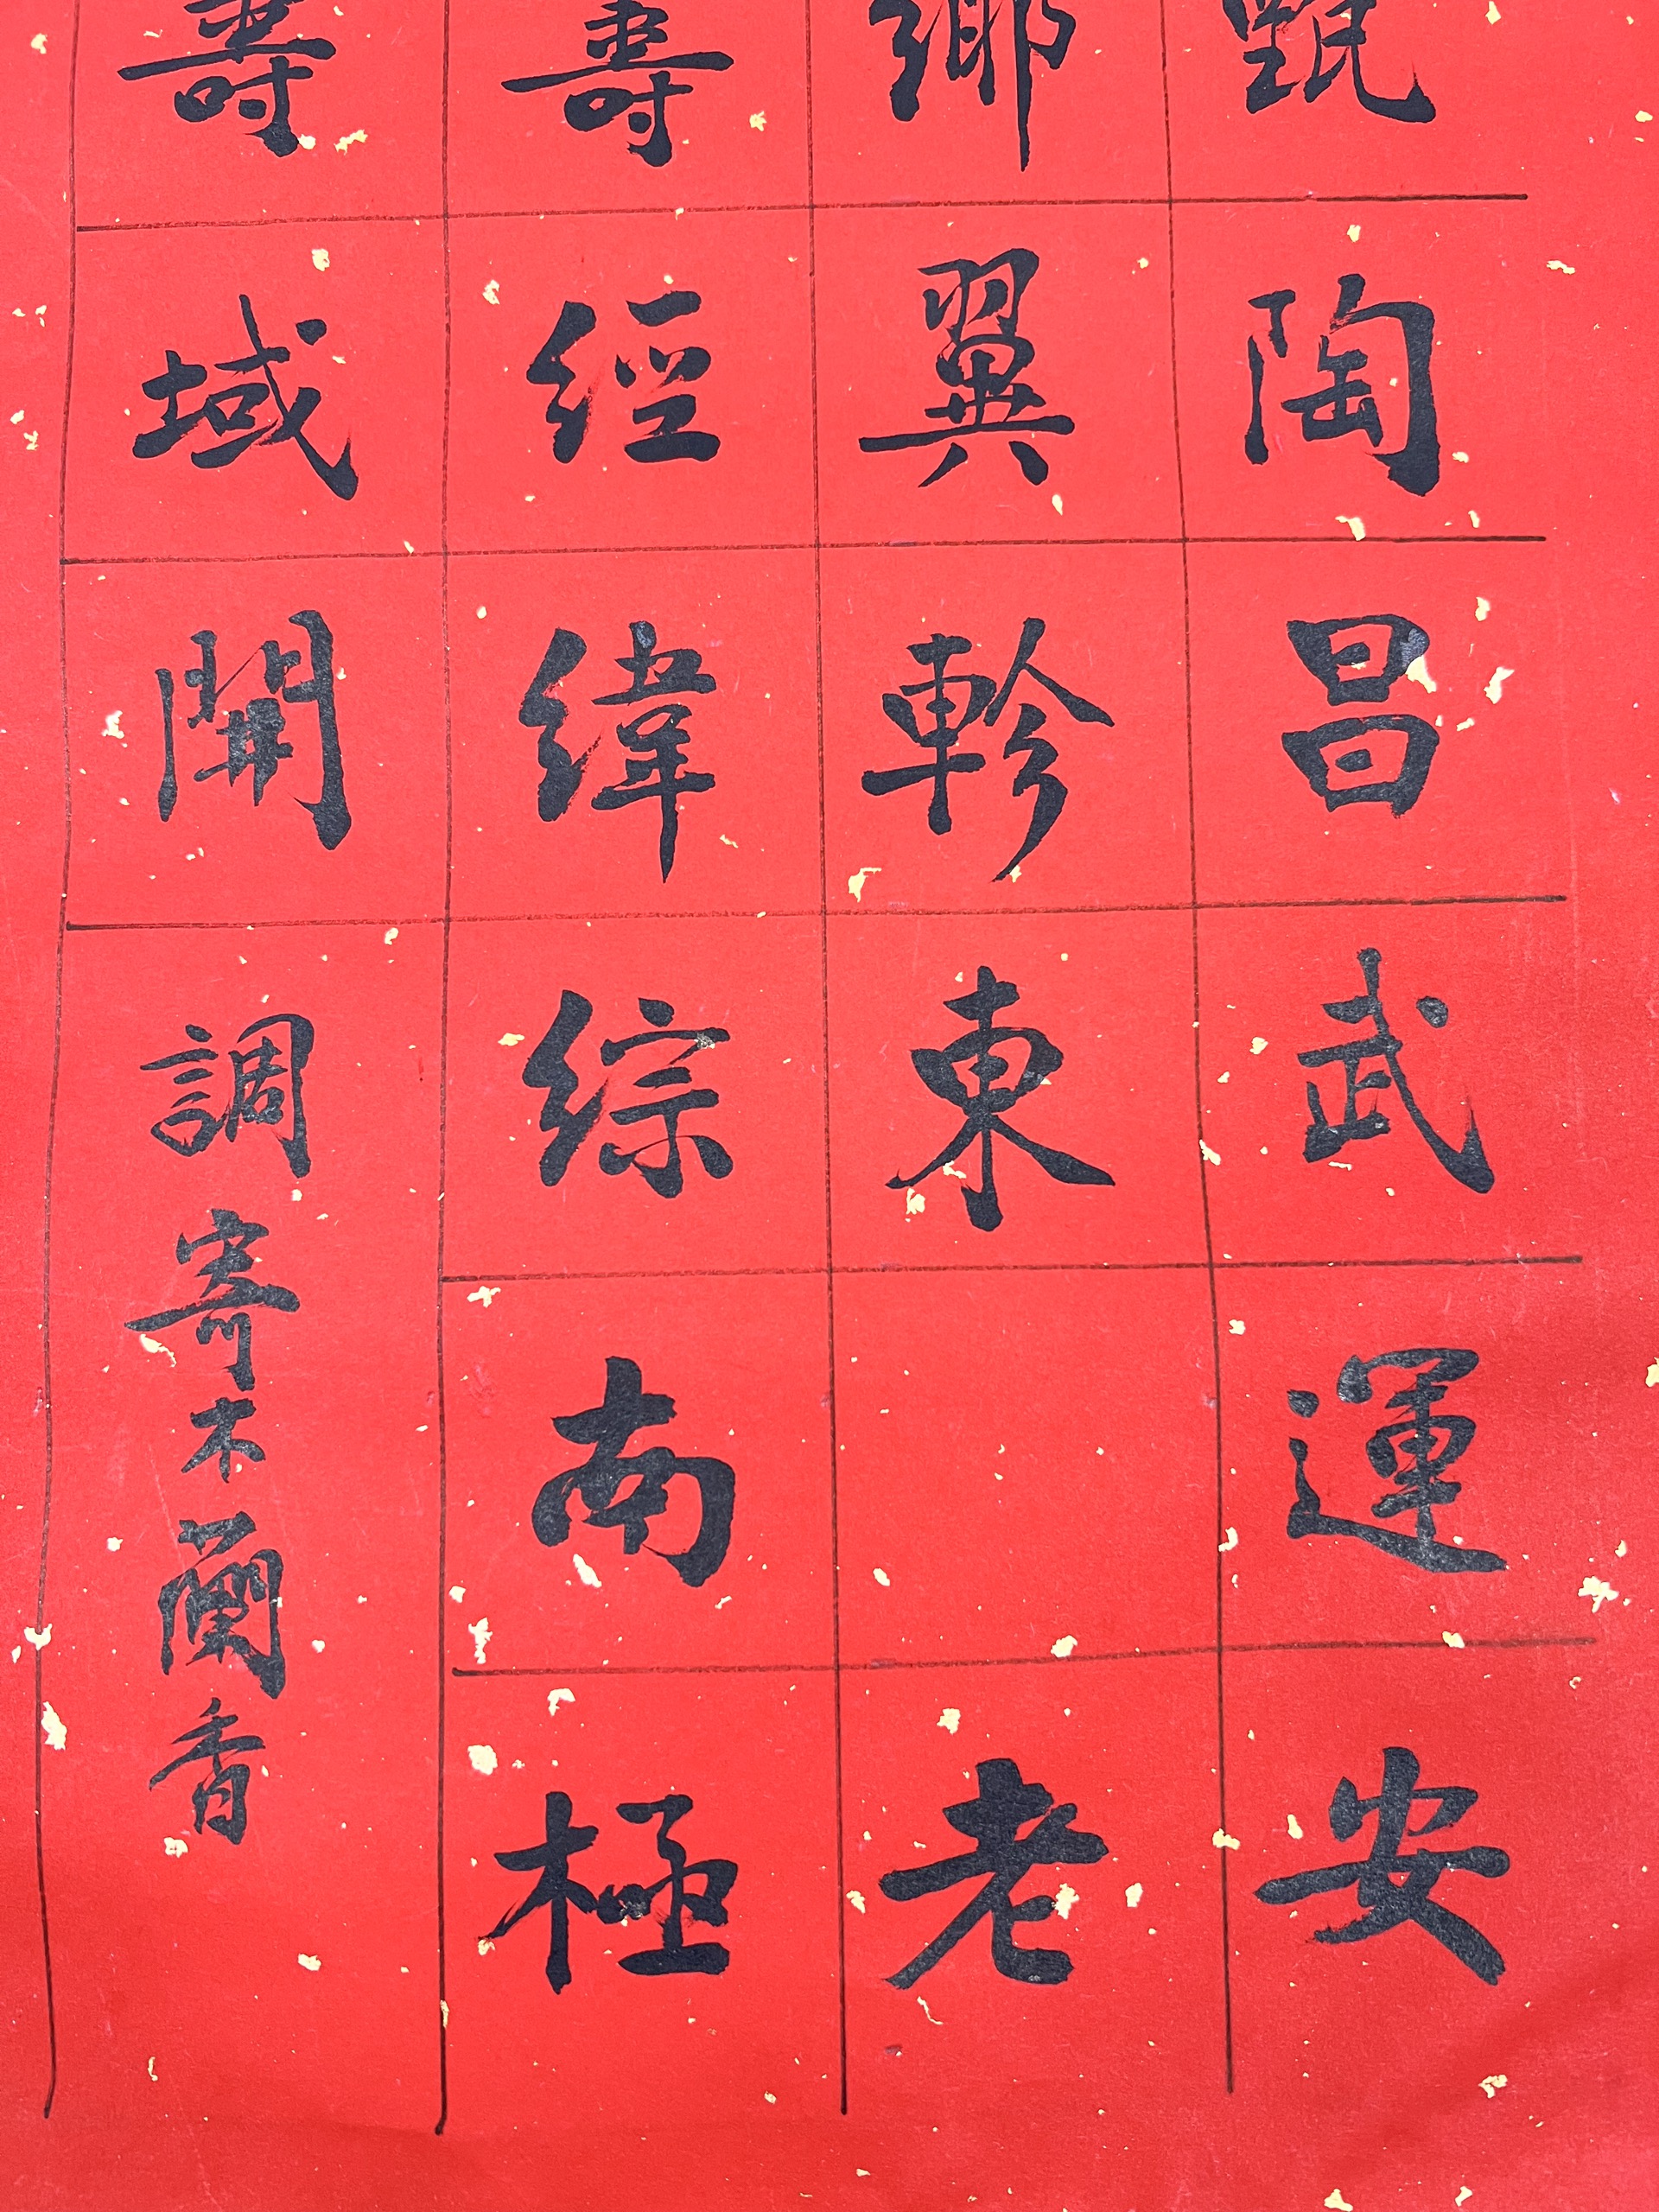 甄陶昌武運安
鄉翼軫東老
壽經緯綜南極
壽域開調寄木蘭香